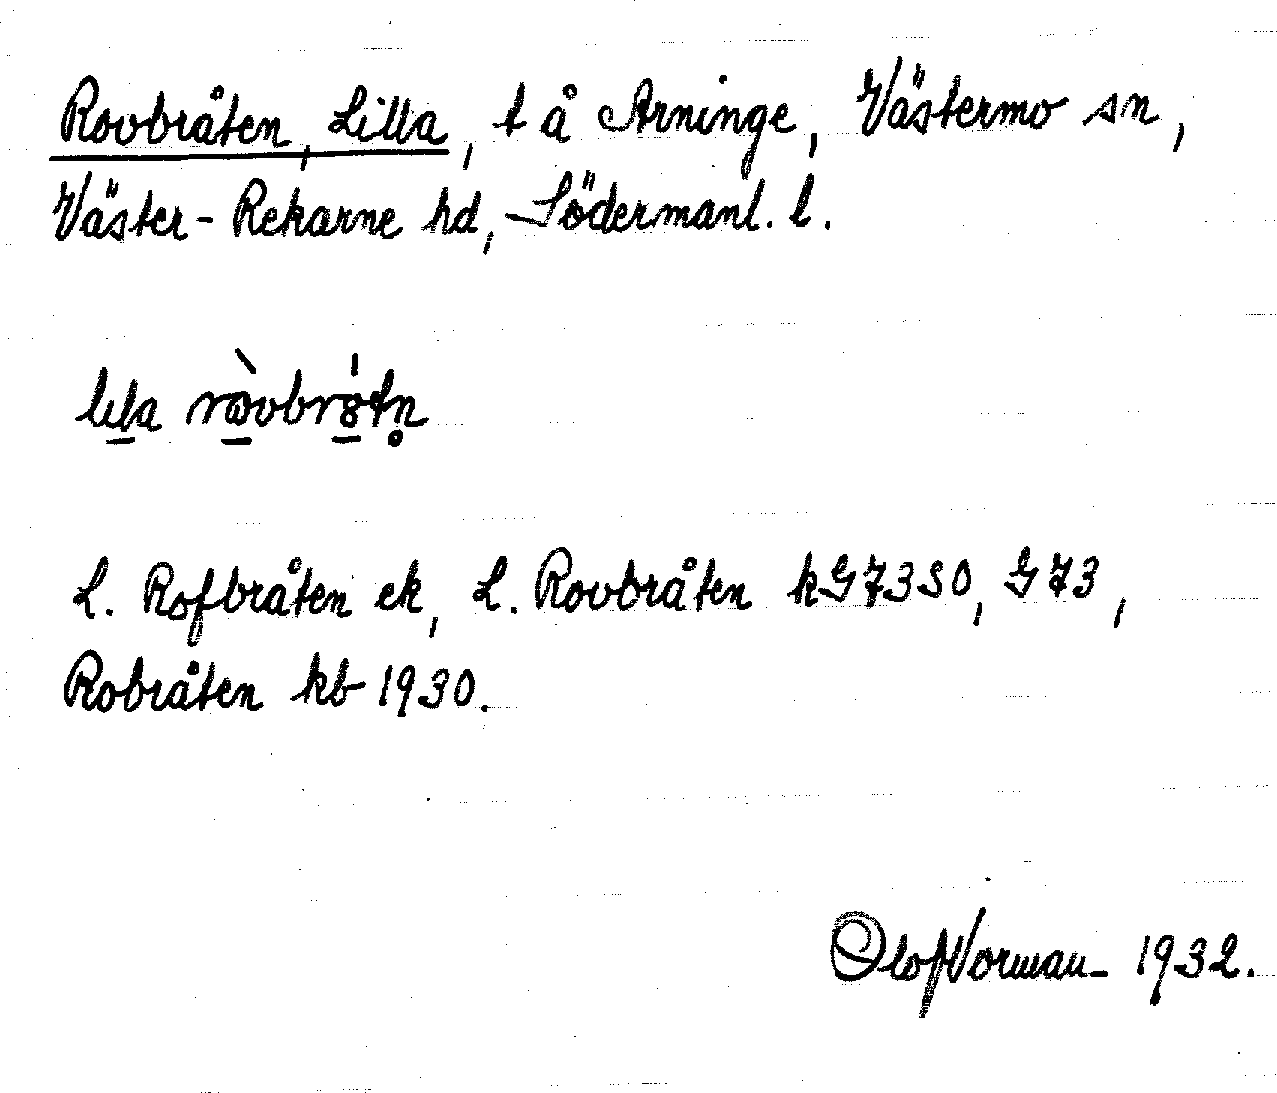 Rovbråten, Lilla, t å Arninge, Västermo sn,
Väster-Rekarne hd, Södermanl. l.
lila
L. Rofbråten ek, L. Rovbråten kG73SO, G73,
Robråten kb 1930.
Olof Norman 1932.